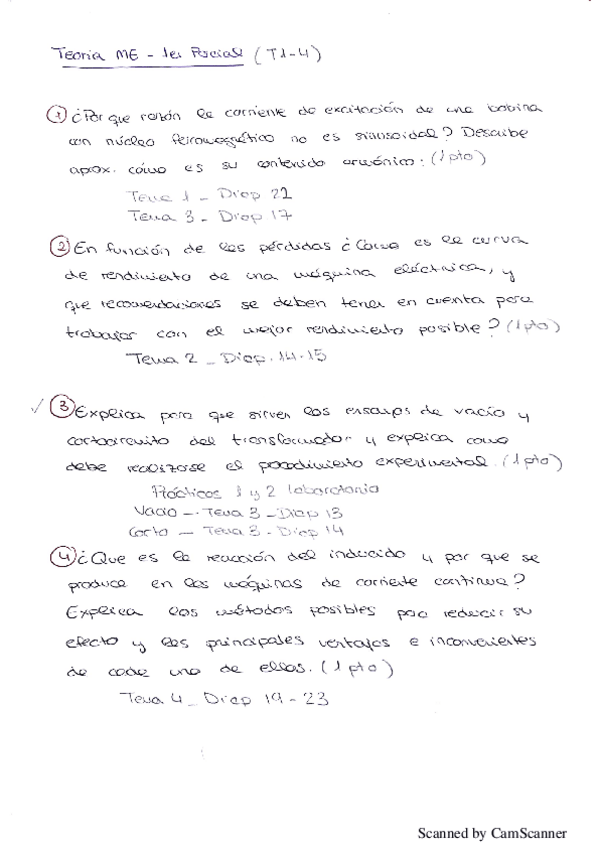 Teoría ME - 1er Parcial (T1-4)
1 ¿Por que razón la corriente de excitación de una bobina
con núcleo ferromagnético no es sinusoidal? Describe
aprox. cómo es su contenido armónico: (1 pto)
Tema 1 - Diap 21
Tema 3 - Diap 17
2 En función de las pérdidas ¿Como es la curva
de rendimiento de una máquina eléctrica, y
que recomendaciones se deben tener en cuenta para
trabajar con el mejor rendimiento posible? (1 pto)
Tema 2 - Diap. 14-15
✓ 3 Explica para que sirven los ensayos de vacío y
cortocircuito del transformador y explica como
debe realizarse el procedimiento experimental. (1 pto)
Prácticas 1 y 2 laboratorio
Vacío - Tema 3 - Diap 13
Corto - Tema 3 - Diap 14
4 ¿Que es la reacción del inducido y por que se
produce en las máquinas de corriente continua?
Explica los métodos posibles para reducir su
efecto y las principales ventajas e inconvenientes
de cada uno de ellos. (1 pto)
Tema 4 - Diap 19-23
Scanned by CamScanner